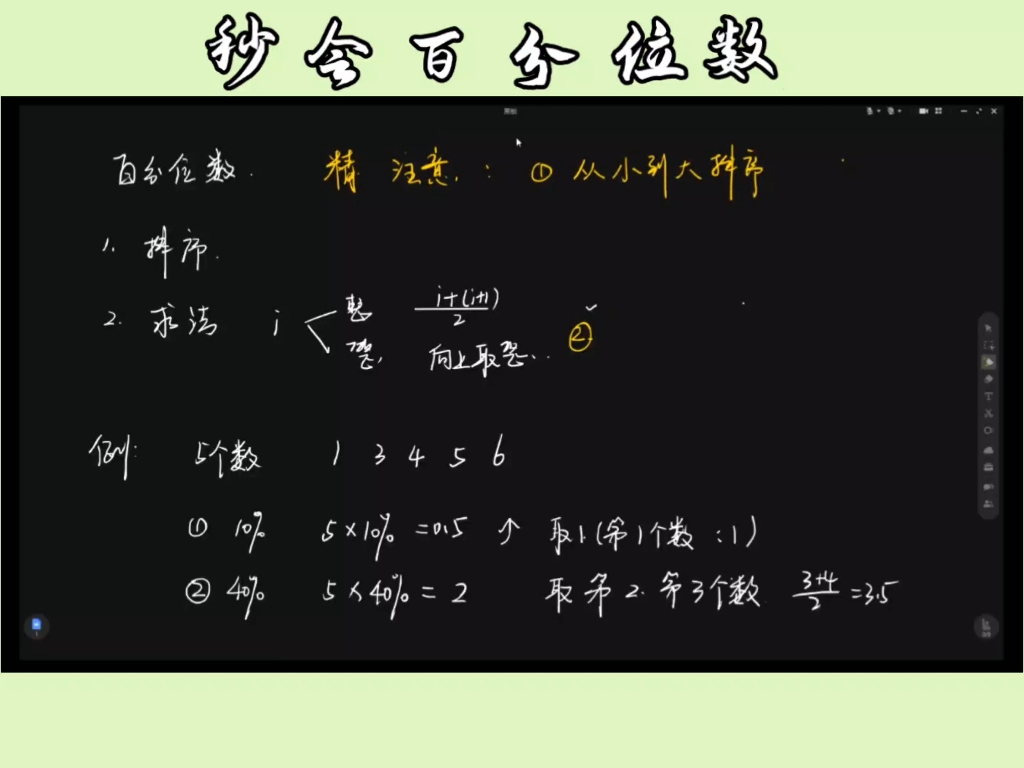 秒会百分位数
百分位数. 精 注意: ① 从小到大排序
1. 排序.
2. 求法 i 整 i+(i+1)/2
向上取整.. ②
例: 5个数 1 3 4 5 6
① 10% 5×10% =0.5 ↑ 取1(第1个数:1)
② 40% 5×40% = 2 取第2.第3个数 3+4/2 =3.5